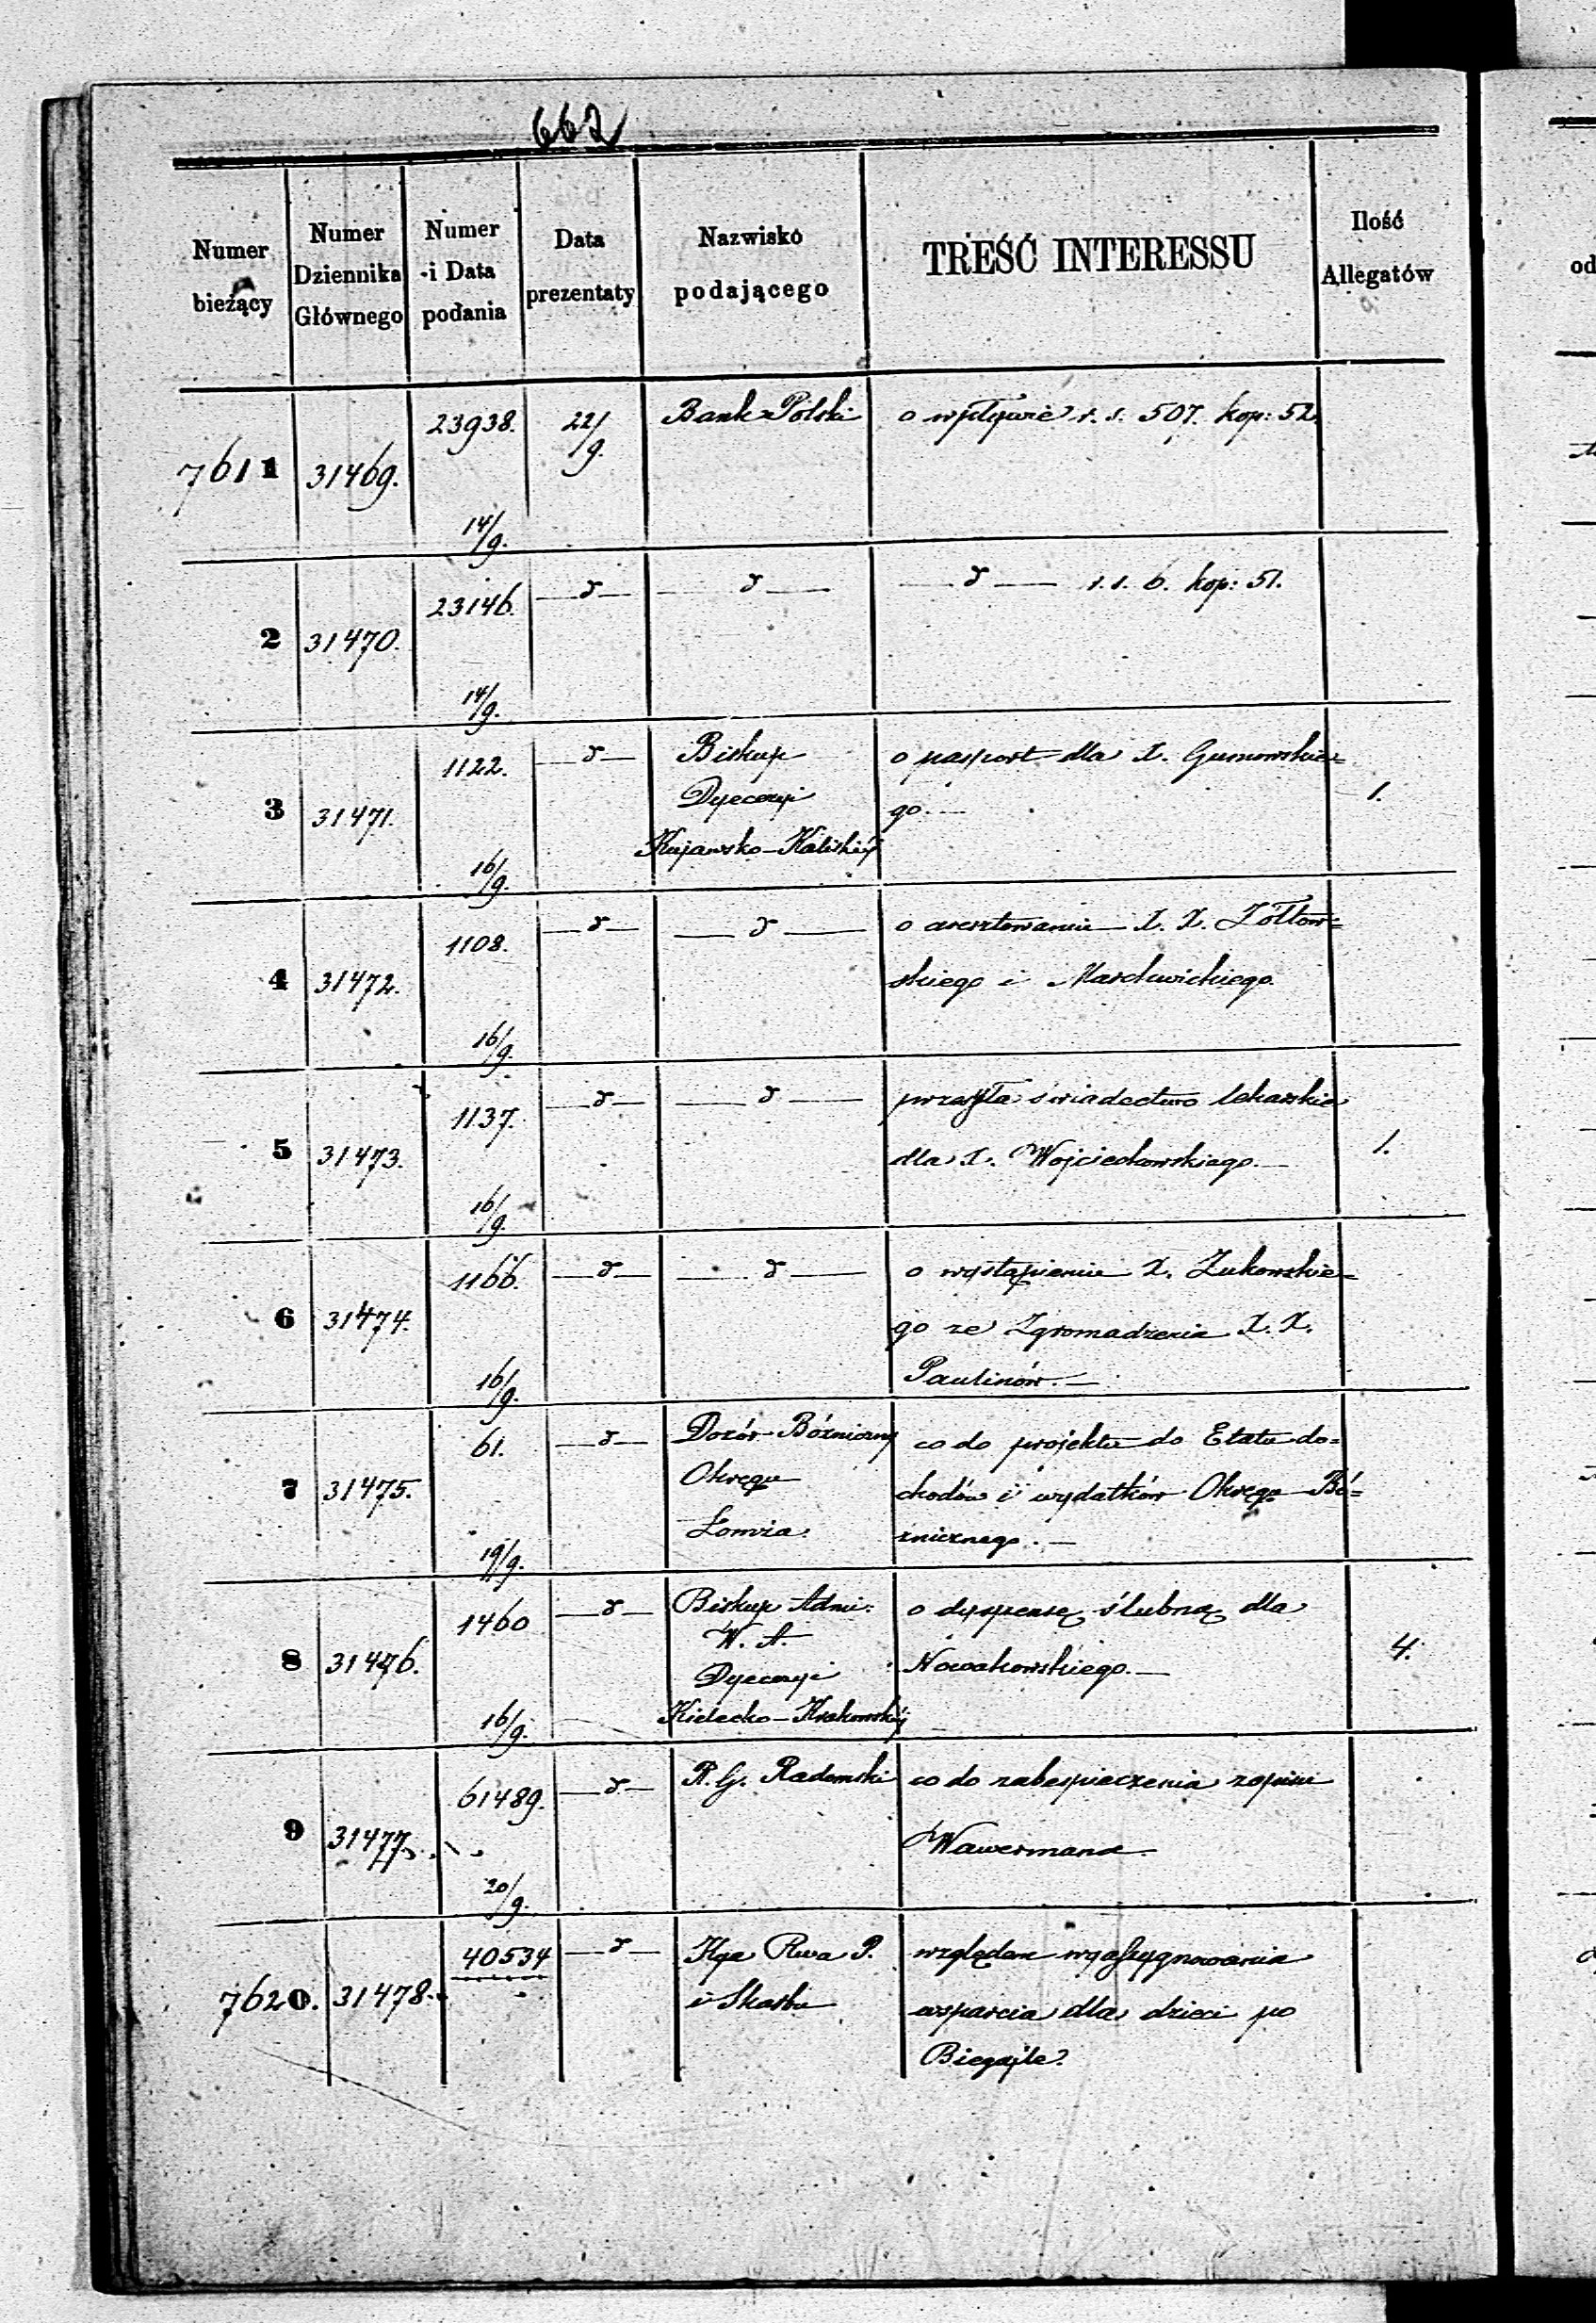 662
Numer bieżący
Numer Dziennika Głównego
Numer i Data podania
Data prezentaty
Nazwisko podającego
TREŚĆ INTERESSU
Ilość Allegatów
7611 31469. 23938. 14/9. 22/9. Bank Polski o wpływie r. s. 507. kop: 52.
2 31470. 23146. 14/9. — d — — d — — d — r. s. 6. kop: 51.
3 31471. 1122. 16/9. — d — Biskup o pasport dla X. Gumowskie= 1.
Dyecezyi go. —
Kujawsko-Kaliskiéj
4 31472. 1108. 16/9. — d — — d — o aresztowaniu X. X. Żółtow=
skiego i Marchwickiego.
5 31473. 1137. 16/9. — d — — d — przesyła świadectwo lekarskie 1.
dla X. Wojciechowskiego. —
6 31474. 1166. 16/9. — d — — d — o wystąpieniu X. Żukowskie=
go ze Zgromadzenia X. X.
Paulinów. —
7 31475. 61. 19/9. — d — Dozór Bóżniczny co do projektu do Etatu do=
Okręgu chodów i wydatków Okręgu Bó=
Łomża. żnicznego. —
8 31476. 1460 16/9. — d — Biskup Admi: o dyspensę ślubną dla 4.
W. A. Nowakowskiego. —
Dyecezyi
Kielecko-Krakowskiéj
9 31477. 61489. 20/9. — d — R. G. Radomski co do zabespieczenia zapisu
Wawermana
7620. 31478. 40534 — d — P. względem wyassygnowania
i Skarbu wsparcia dla dzieci po
Biegajle.